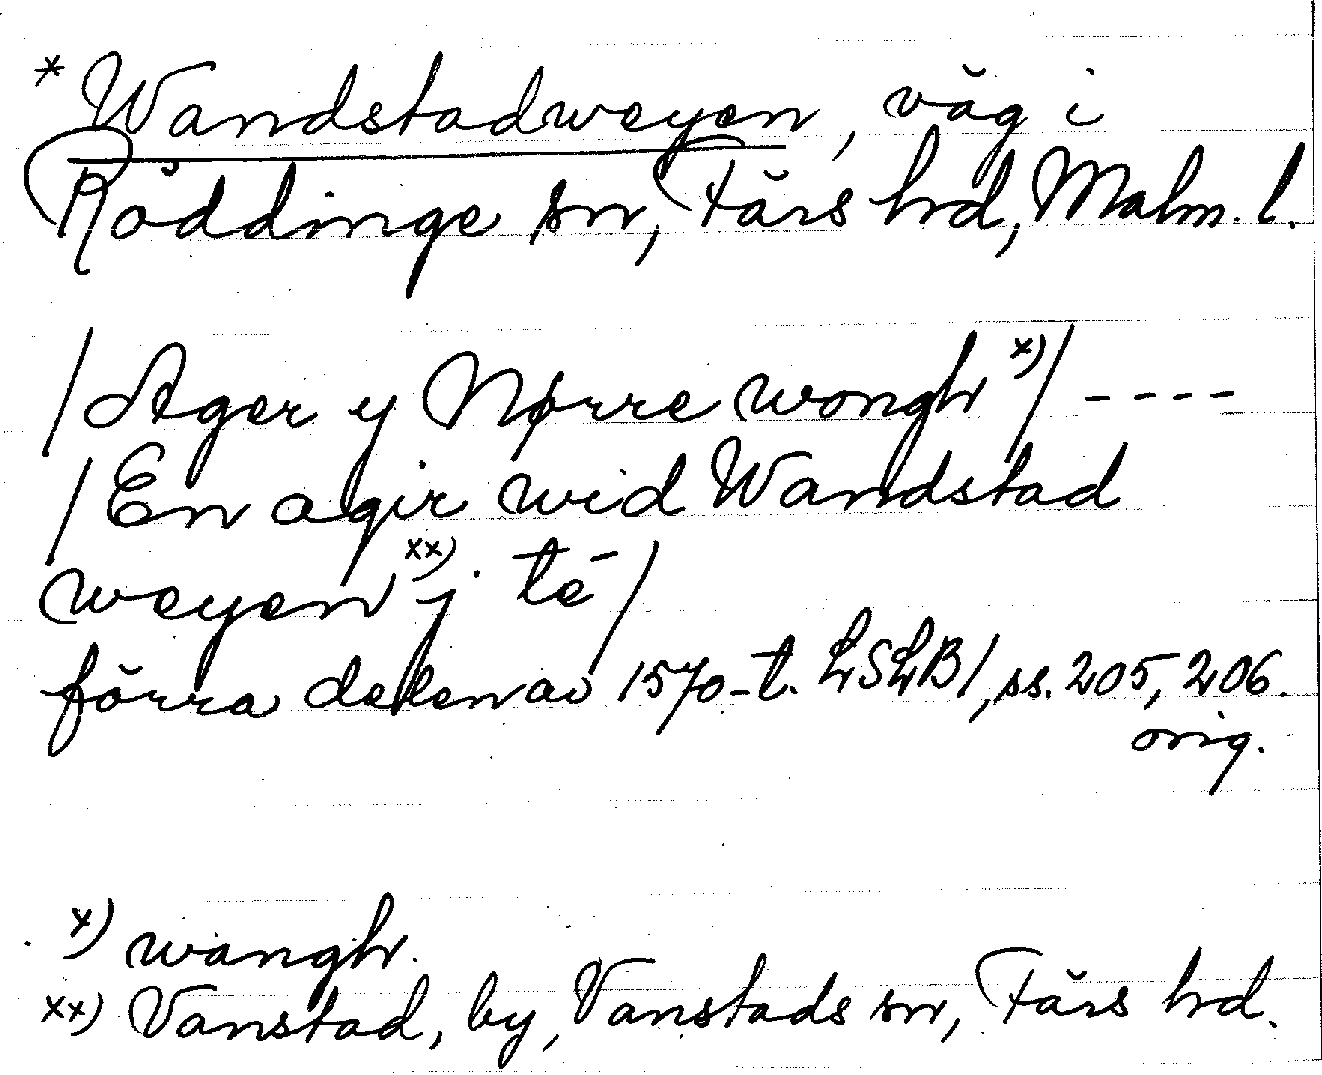 * Wandstadweyen, väg i
Röddinge sn, Färs hrd, Malm. l.
/Ager y Nørre wongh x)/ ----
/En agir wid Wandstad
weyen xx) j té/
förra delen av 1570-t. LSLB1, ss. 205, 206.
orig.
x) wangh.
xx) Vanstad, by, Vanstads sn, Färs hrd.